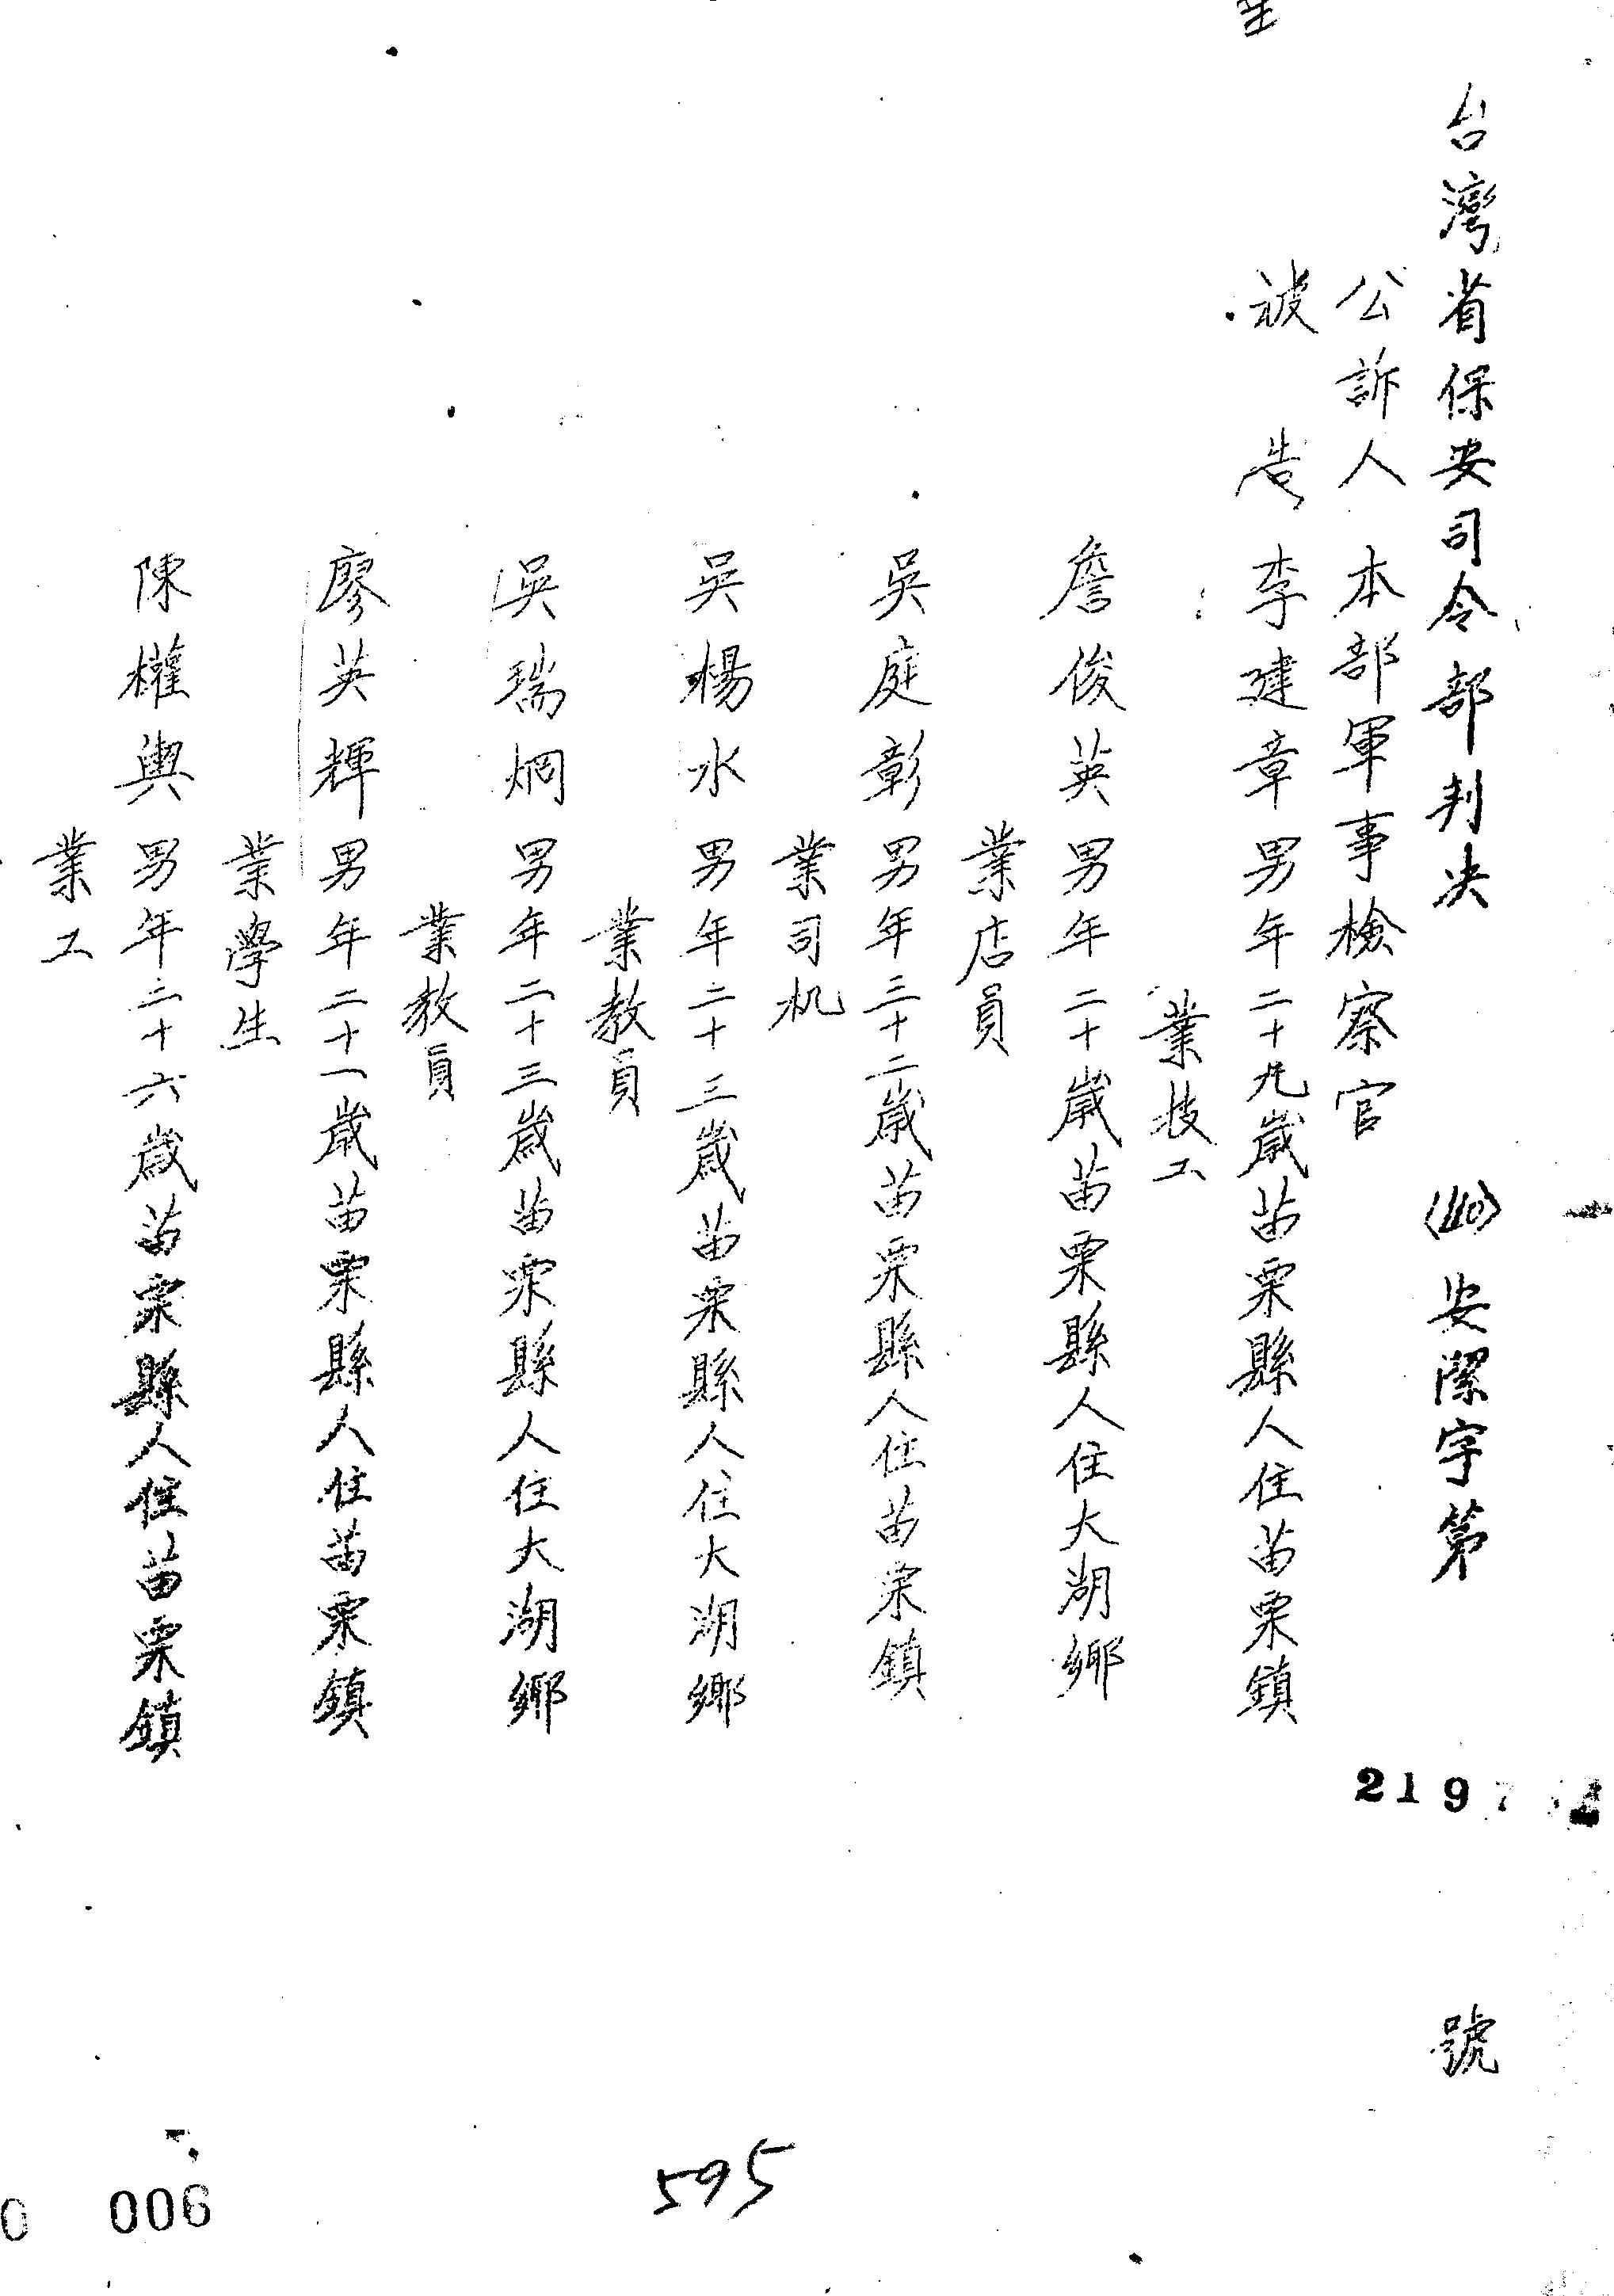 台灣省保安司令部判決 (40)安潔字第 2197 號
公訴人 本部軍事檢察官
被告 李建章 男年二十九歲苗栗縣人住苗栗鎮
業技工
詹俊英 男年二十歲苗栗縣人住大湖鄉
業店員
吳庭彰 男年三十二歲苗栗縣人住苗栗鎮
業司机
吳楊水 男年二十三歲苗栗縣人住大湖鄉
業教員
吳瑞烱 男年二十三歲苗栗縣人住大湖鄉
業教員
廖英輝 男年二十一歲苗栗縣人住苗栗鎮
業學生
陳權輿 男年二十六歲苗栗縣人住苗栗鎮
業工
595
0 006